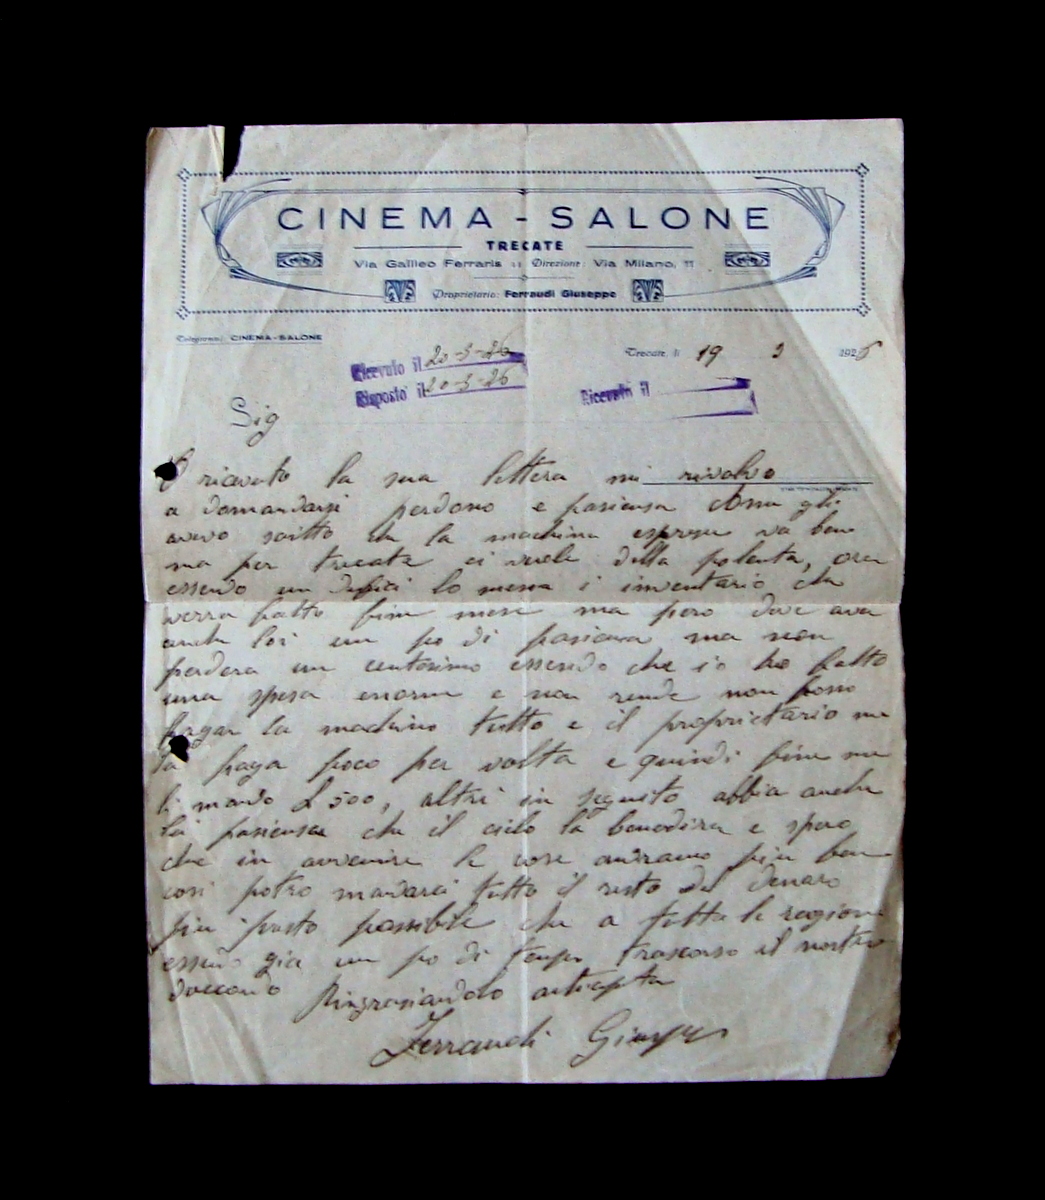 CINEMA - SALONE
TRECATE
Via Galileo Ferraris :: Direzione: Via Milano, 11
Proprietario: Ferraudi Giuseppe
Telegrammi: CINEMA-SALONE
Ricevuto il 20-3-26
Risposto il 20-3-26
Trecate, li 19 3 1926
Ricevuto il
Sig
O ricevuto la sua lettera mi rivolvo
a domandarsi perdono e pasiensa gli
avevo scritto che la machina va ben
ma per trecate ci vuole della potenta, ora
essendo un di lo messa i inventario che
verra fatto fine mese ma pero deve
anche lei un po di pasiensa ma non
perdera un centesimo essendo che io ho fatto
una spesa enorme e non rende non posso
pagar la machina tutto e il proprietario me
la paga poco per volta e quindi fine me
li mando L 500, altri in seguito abbia anche
lei pasiensa che il cielo la benedira e spero
che in avvenire le cose andranno piu bene
cosi potro mandarci tutto il resto del denaro
piu presto possibile che a tutte le ragione
essendo gia un po di tempo trascorso il nostro
Ringrasiandolo
Ferraudi Giuseppe